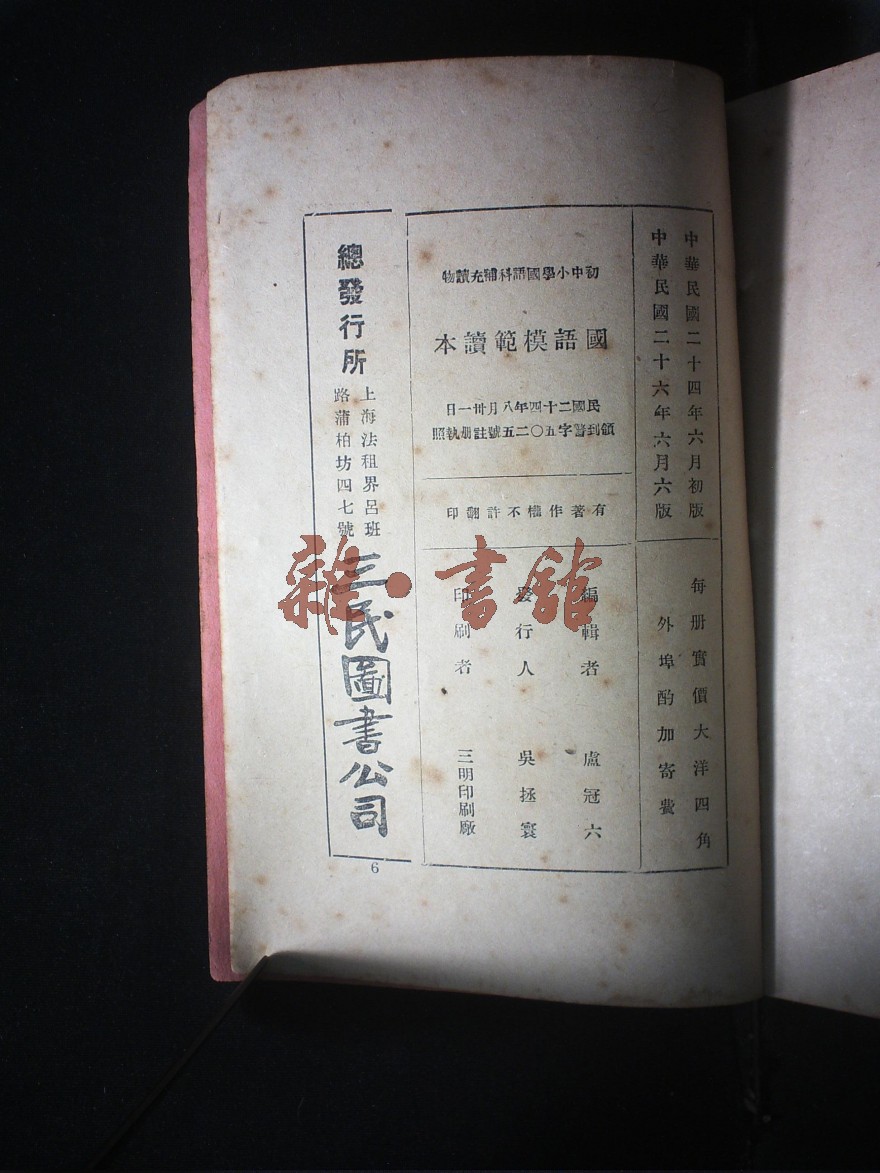 中華民國二十四年六月初版
中華民國二十六年六月六版
每册實價大洋四角
外埠酌加寄費
初中小學國語科補充讀物
國語模範讀本
民國二十四年八月卅一日
領到警字五〇二五號註册執照
有著作權不許翻印
編輯者 盧冠六
發行人 吳拯寰
印刷者 三明印刷廠
總發行所
上海法租界呂班
路蒲柏坊四七號
三民圖書公司
6
雜·書館